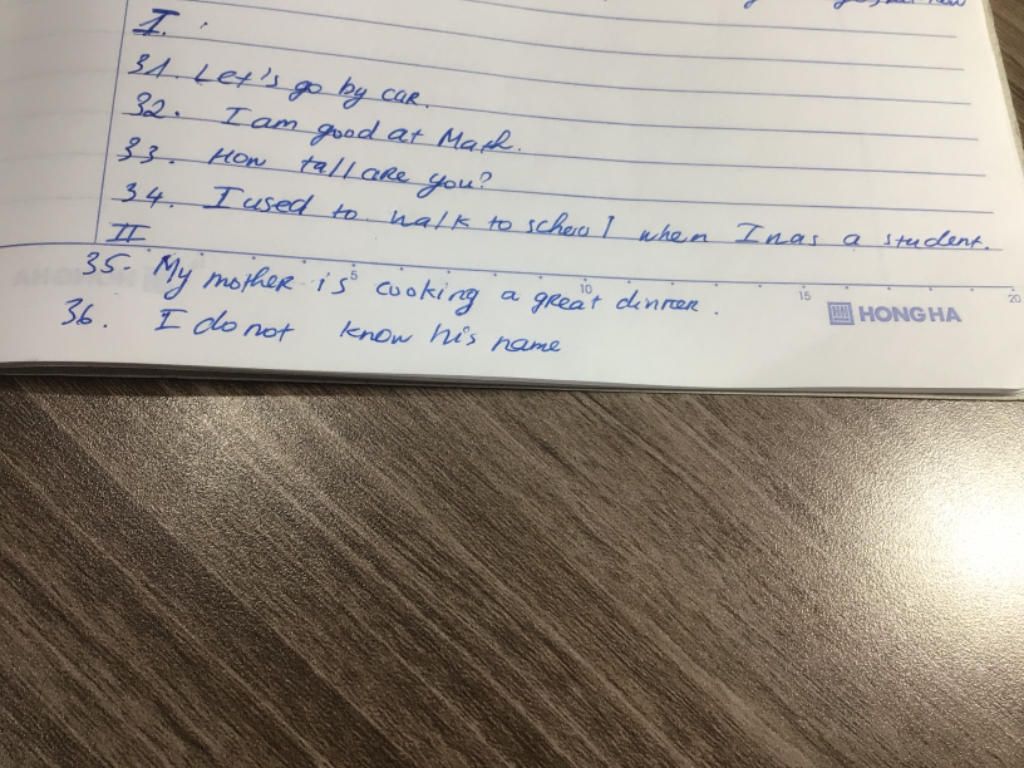 I.
31. Let's go by car.
32. I am good at Math.
33. How tall are you?
34. I used to walk to school when I was a student.
II
35. My mother is cooking a great dinner.
36. I do not know his name
5 10 15 20
HONG HA